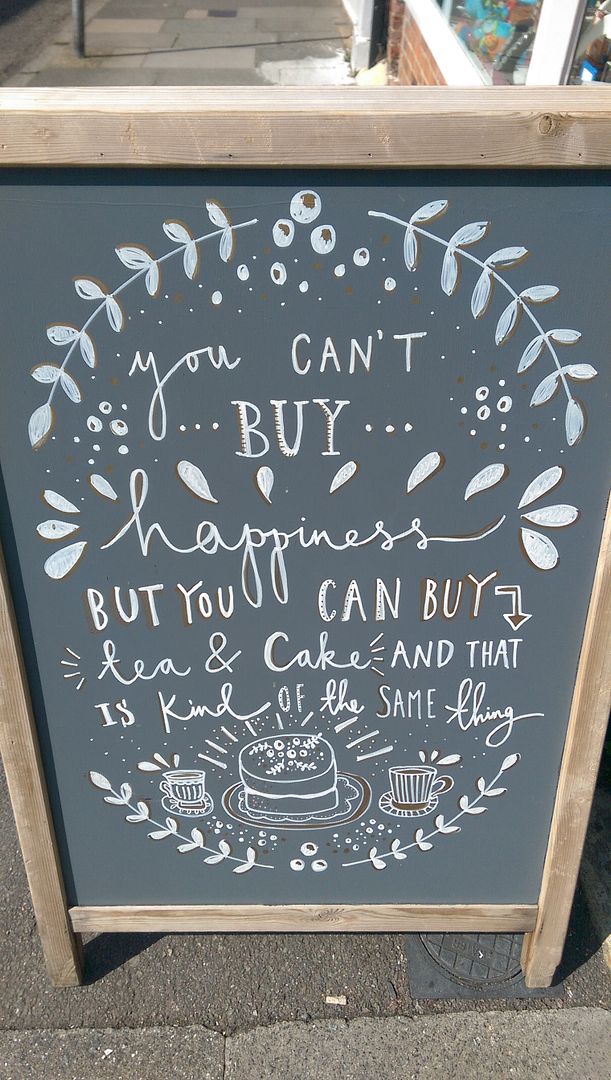 you CAN'T
... BUY ...
happiness
BUT YOU CAN BUY
tea & Cake AND THAT
IS Kind OF the SAME thing